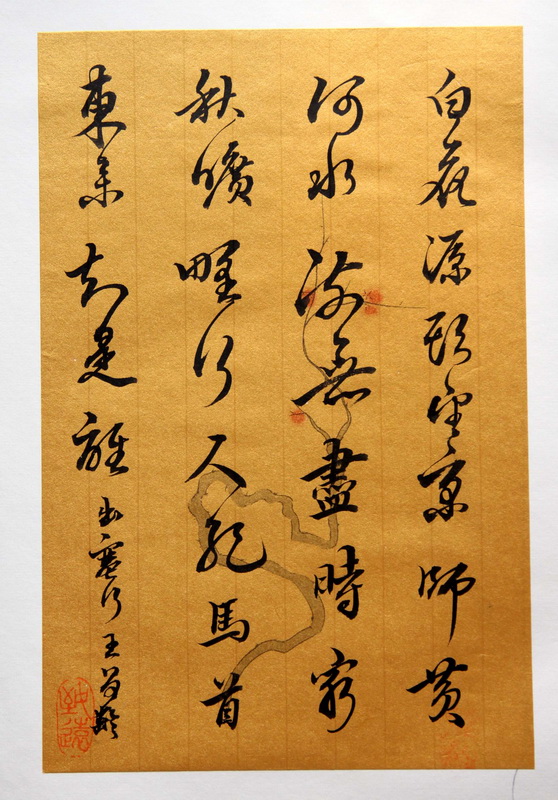 白花源頭望京師黄
河水流無盡時窮
秋曠野行人絕馬首
東來知是誰
出塞行王昌齡